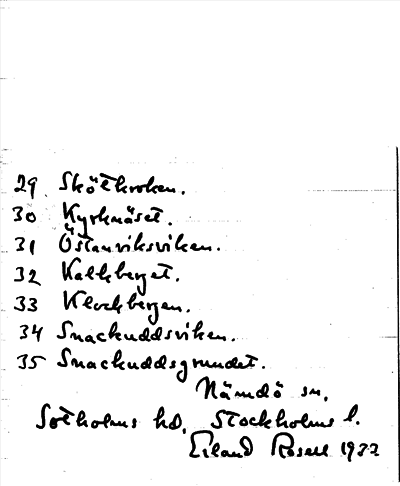 29 Skötkroken.
30 Kyrknäset.
31 Östanviksviken.
32 Kalkberget.
33 Klockbergen.
34 Snackuddsviken.
35 Snackuddsgrundet.
Nämdö sn.
Sotholms hd. Stockholms l.
Erland Rosell 1932